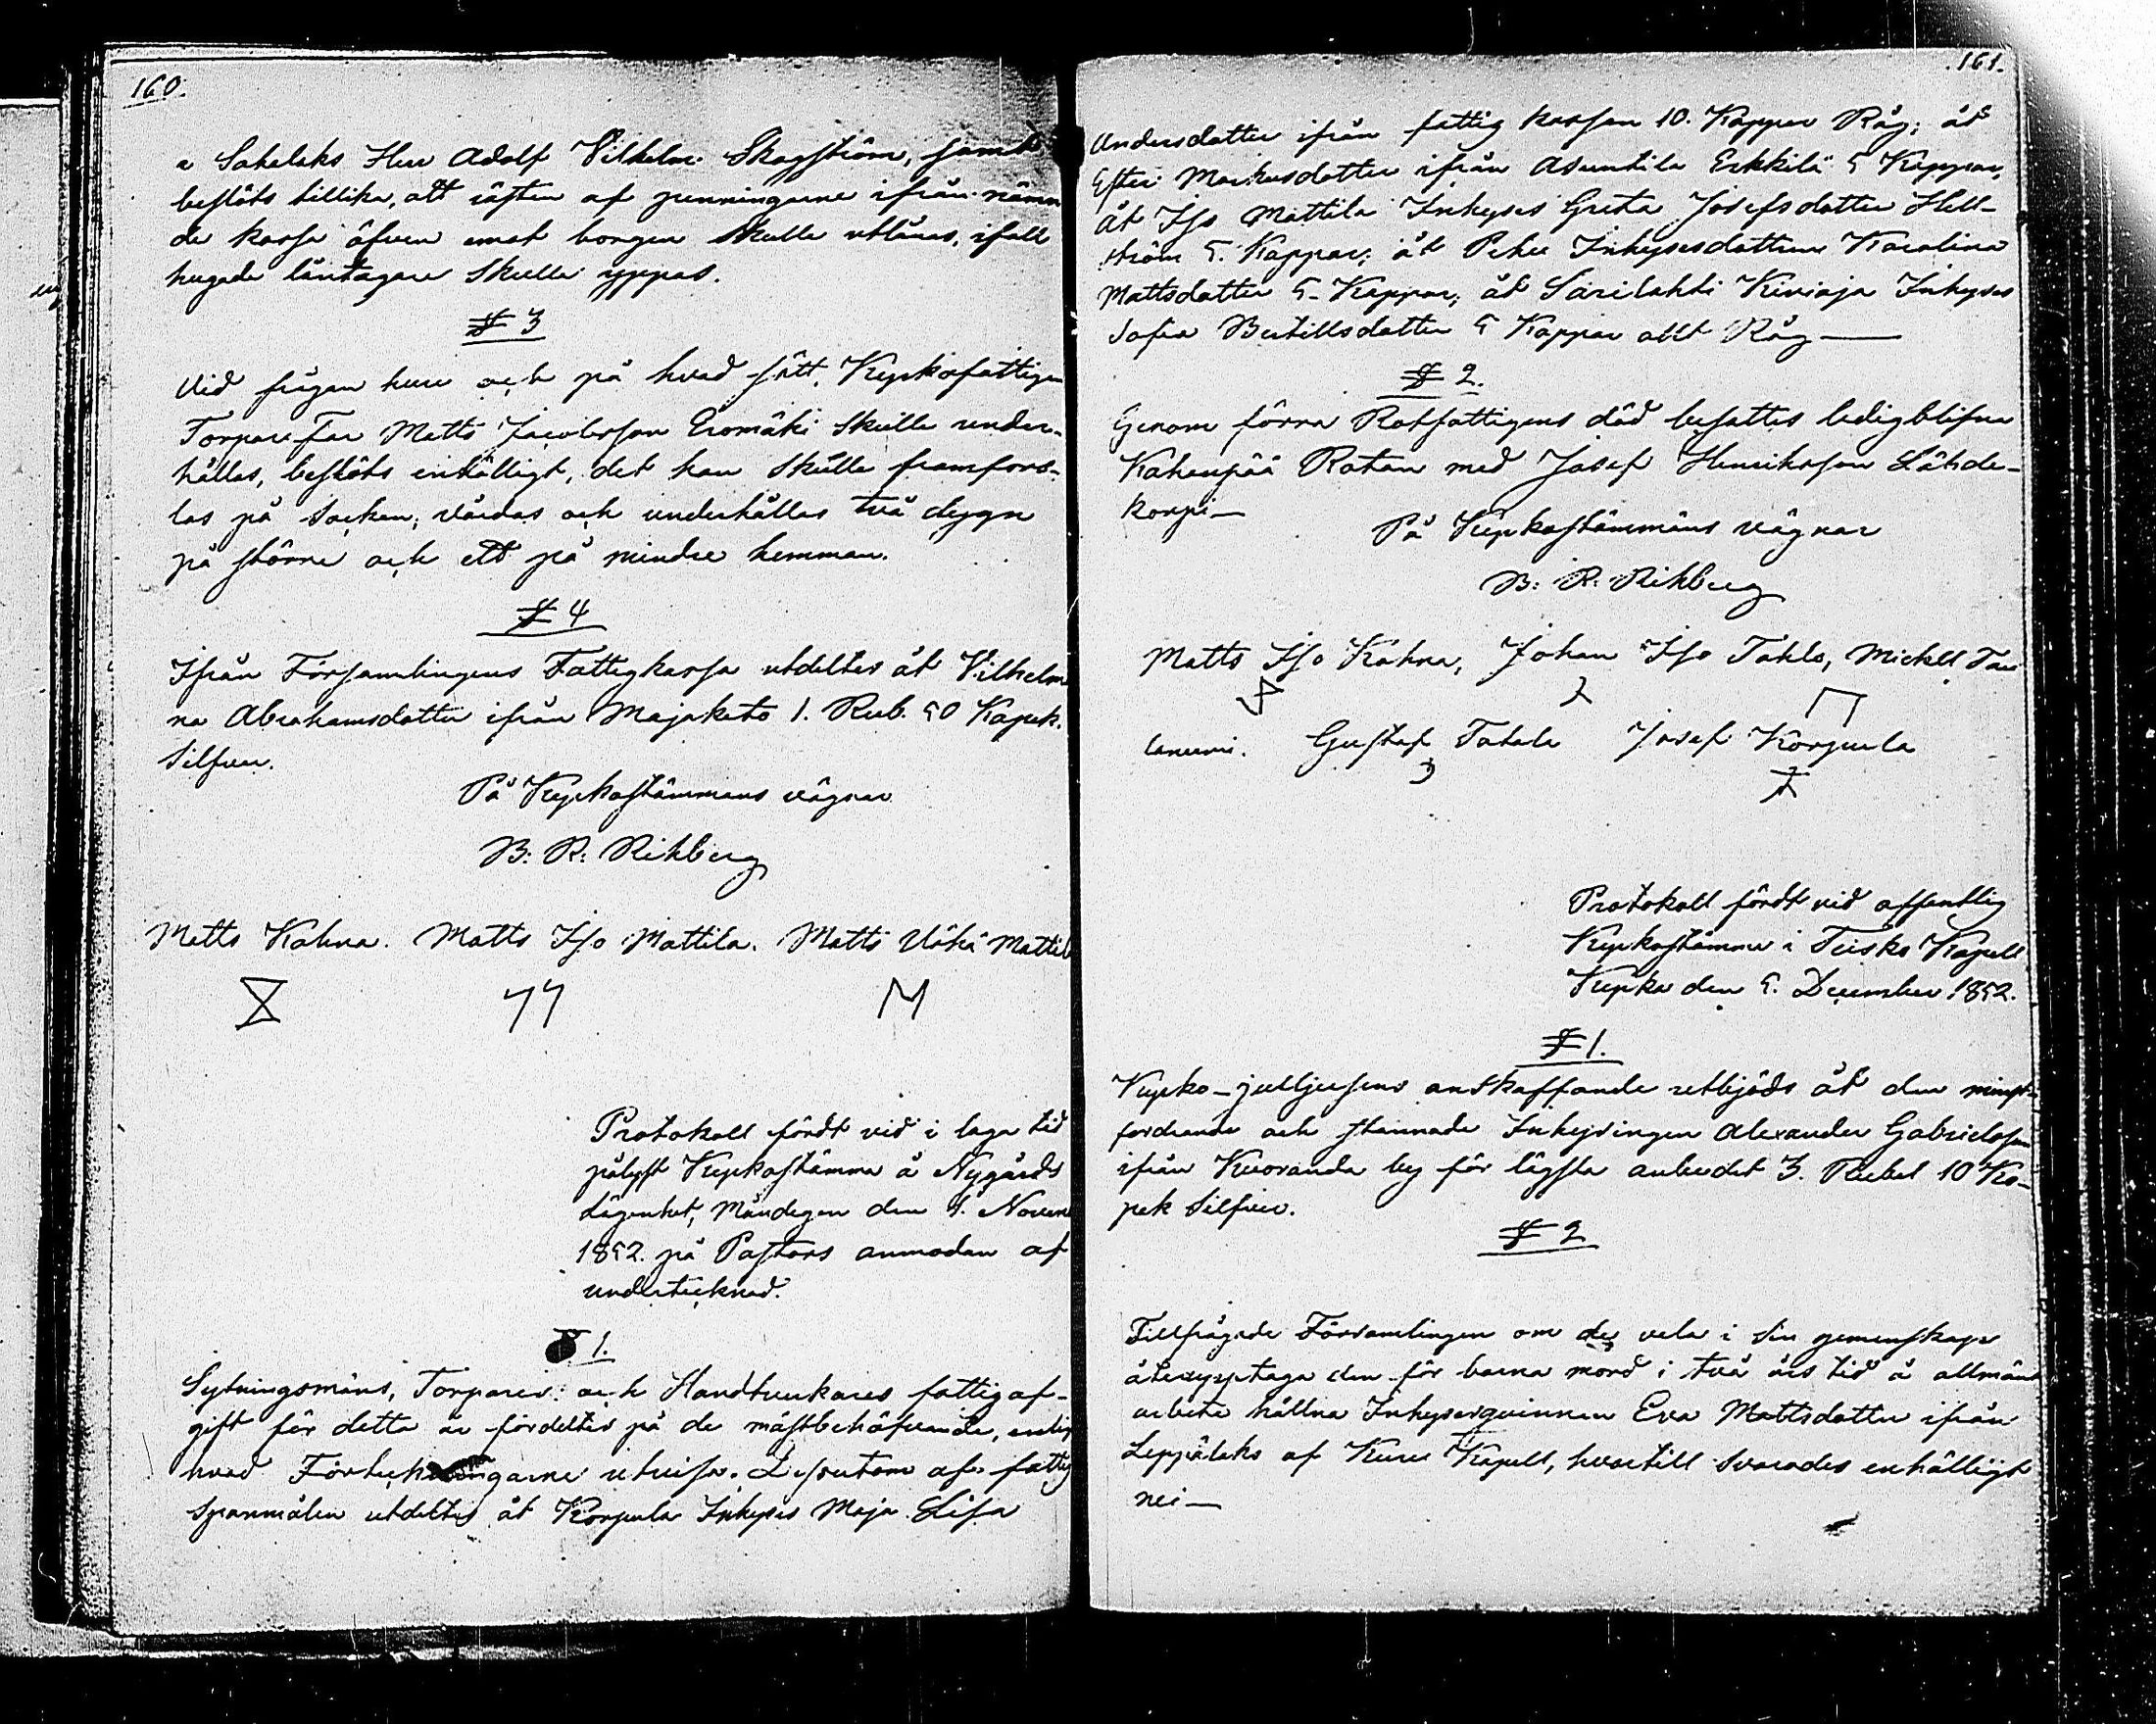 160.
a Sakelaks Herr Adolf Vilhelm Skogström, samt
beslöts tillika, att räften af penningarne ifrån nämn
de kassa äfven emot borgen skulle utlånas, ifall
hugade låntagare skulle yppas.
§ 3
Vid frågan huru och på hvad sätt, Kyrkofattigen
Torpare Far Matts Jacobsson Eromäki skulle under-
hållas, beslöts enhälligt, det han skulle framfors-
las på Socken, vårdas och underhållas två dygn
på större och ett på mindre hemman.
§ 4
Ifrån Församlingens Fattigkassa utdeltes åt Vilhelmi
na Abrahamsdotter ifrån Majakato 1. Rub. 50 Kopek.
Silfver.
På Kyrkostämmans vägnar
B: R: Rihberg
Matts Kahra. Matts Iso Mattila. Matts Vähä Mattil
Protokoll fördt vid i laga tid
pålyst Kyrkostämma å Nygårds
Lägenhet, Måndagen den 1. Novem
1852. på Pastors anmodan af
undertecknad.
§ 1.
Sytningsmäns, Torpares och Handtverkares fattigaf-
gift för detta år fördeltes på de mästbehöfvande, enlig
hvad Förteckningarne utvisa. Dessutom af fattig
Spanmålen utdeltes åt Korpula Inhyses Maja Lisa
161.
Andersdotter ifrån fattig kassan 10. Kappar Råg; åt
Efter Markusdotter ifrån Asuntila Erkkilä 5 Kappar,
åt Iso Mattila Inhyses Greta Josefsdotter Hell-
ström 5. Kappar; åt Pehu Inhysesdottern Karolina
Mattsdotter 5- Kappar, åt Sarilahti Kivioja Inhyses
Sofia Bertillsdotter 5 Kappar allt Råg —
§ 2.
Genom förra Rotfattigens död besattes ledigblifne
Kahanpää Rotan med Josef Henriksson Lähde-
korpi —
På Kyrkostämmans vägnar
B: R: Rihberg
Matts Iso Kahra, Johan Iso Tahlo, Mickell Tau
laniemi. Gustaf Tahalo Josef Korpula
Protokoll fördt vid offentlig
Kyrkostämma i Teisko Kapell
Kyrka den 5. December 1852.
§ 1.
Kyrko-julljusens anskaffande utbjöds åt den minst-
fordrande och stannade Inhysingen Alexander Gabrielsson
ifrån Kuoranda by för lägsta anbudet 3. Rubel 10 Ko-
pek Silfver.
§ 2
Tillfrågades Församlingen om de vela i sin gemenskap
återupptaga den för barna mord i två års tid å allmänt
arbete hållna Inhysesqvinnan Eva Mattsdotter ifrån
Leppälaks af Kuru Kapell, hvartill svarades enhälligt
nei —